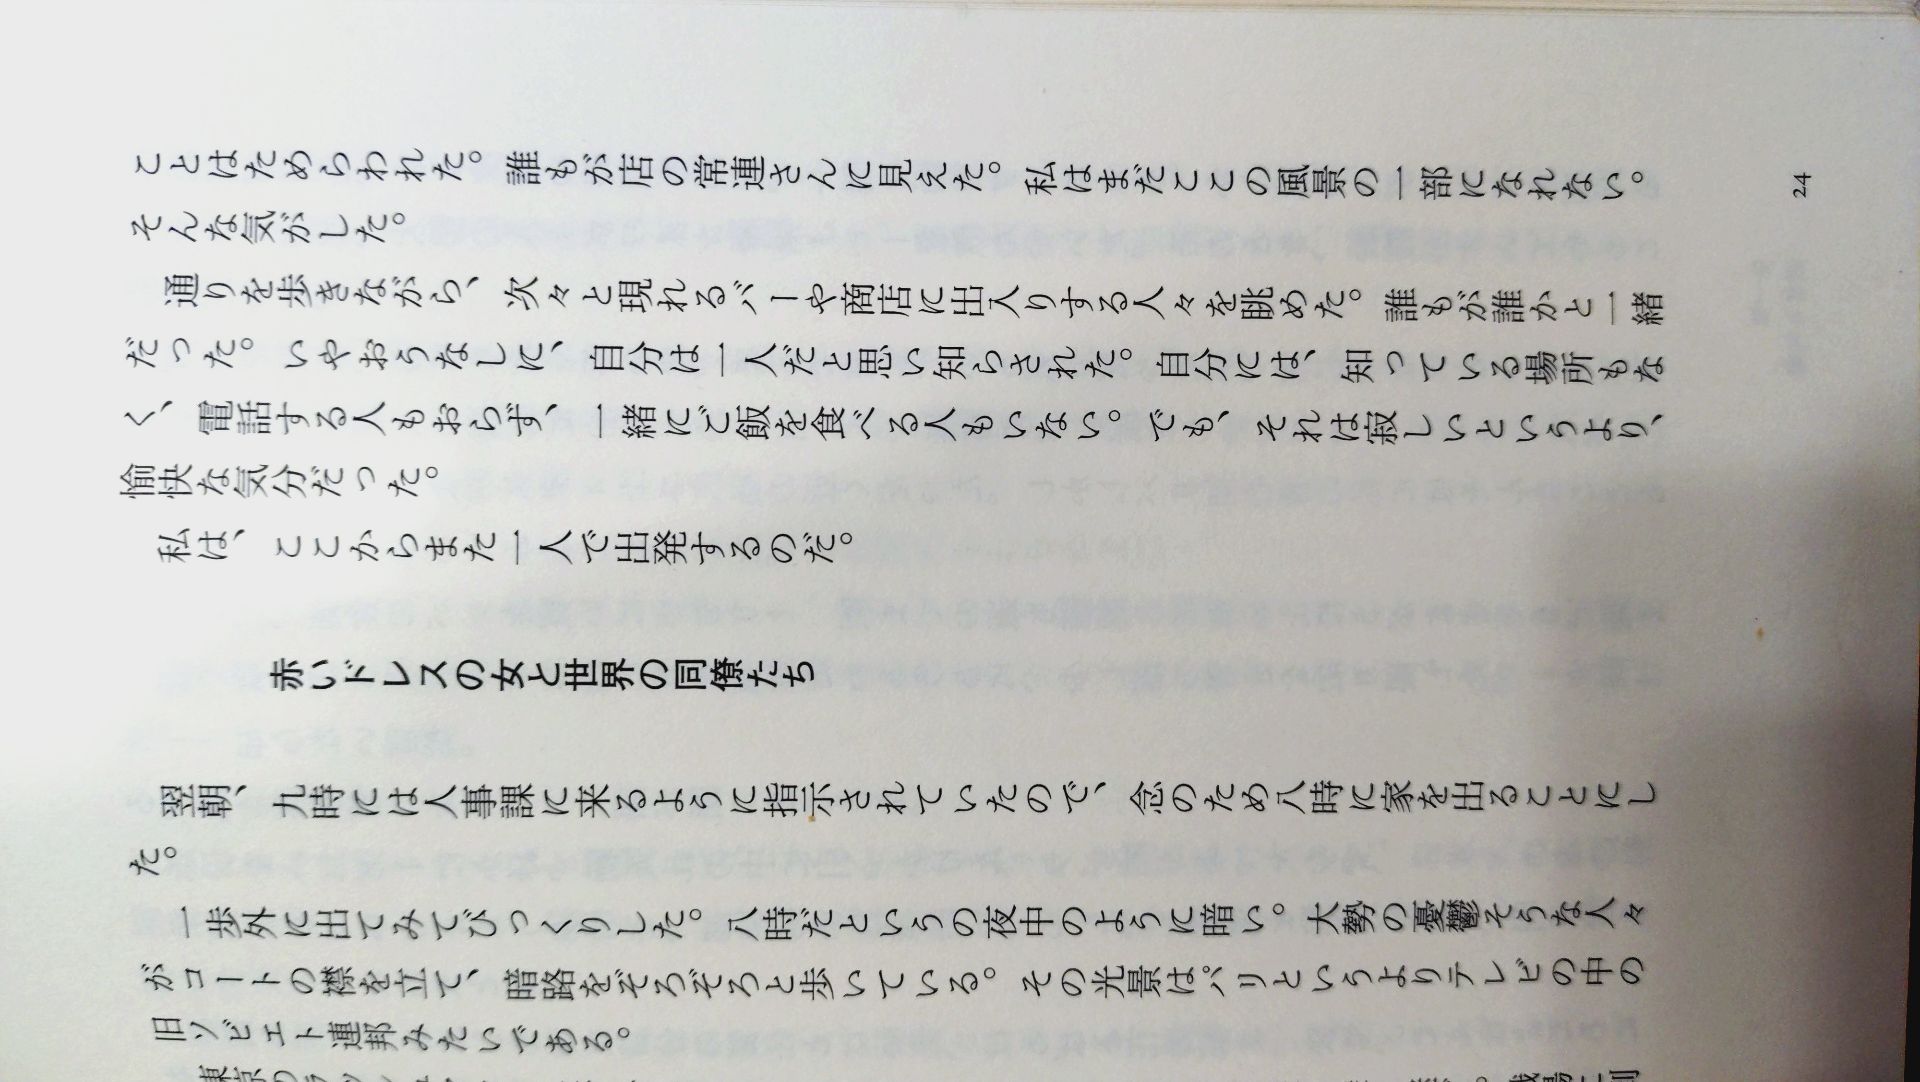 ことはためらわれた。誰もが店の常連さんに見えた。私はまだここの風景の一部になれない。
そんな気がした。
通りを歩きながら、次々と現れるバーや商店に出入りする人々を眺めた。誰もが誰かと一緒
だった。いやおうなしに、自分は一人だと思い知らされた。自分には、知っている場所もな
く、電話する人もおらず、一緒にご飯を食べる人もいない。でも、それは寂しいというより、
愉快な気分だった。
私は、ここからまた一人で出発するのだ。
赤いドレスの女と世界の同僚たち
翌朝、九時には人事課に来るように指示されていたので、念のため八時に家を出ることにし
た。
一歩外に出てみてびっくりした。八時だというの夜中のように暗い。大勢の憂鬱そうな人々
がコートの襟を立て、暗路をぞろぞろと歩いている。その光景はパリというよりテレビの中の
旧ソビエト連邦みたいである。
24